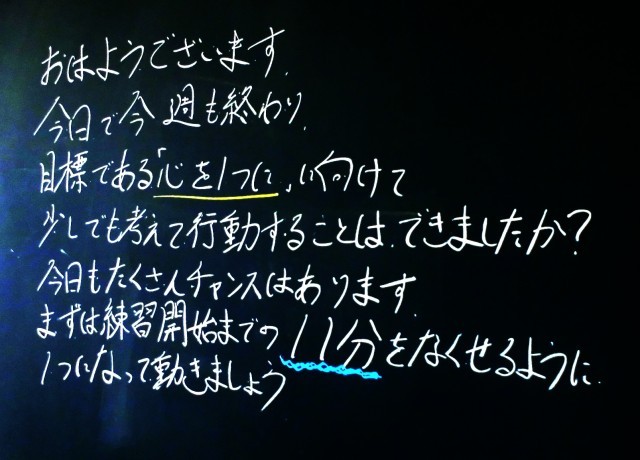 おはようございます.
今日で今週も終わり.
目標である「心を1つに」に向けて
少しでも考えて行動することはできましたか?
今日もたくさんチャンスはあります.
まずは練習開始までの11分をなくせるように
1つになって動きましょう